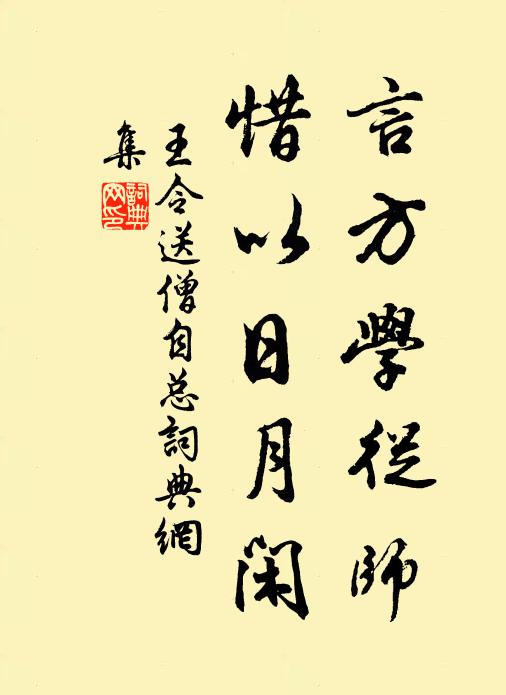 言方學從師
惜以日月閑
王令送僧自总詞典網
集
詞典網印